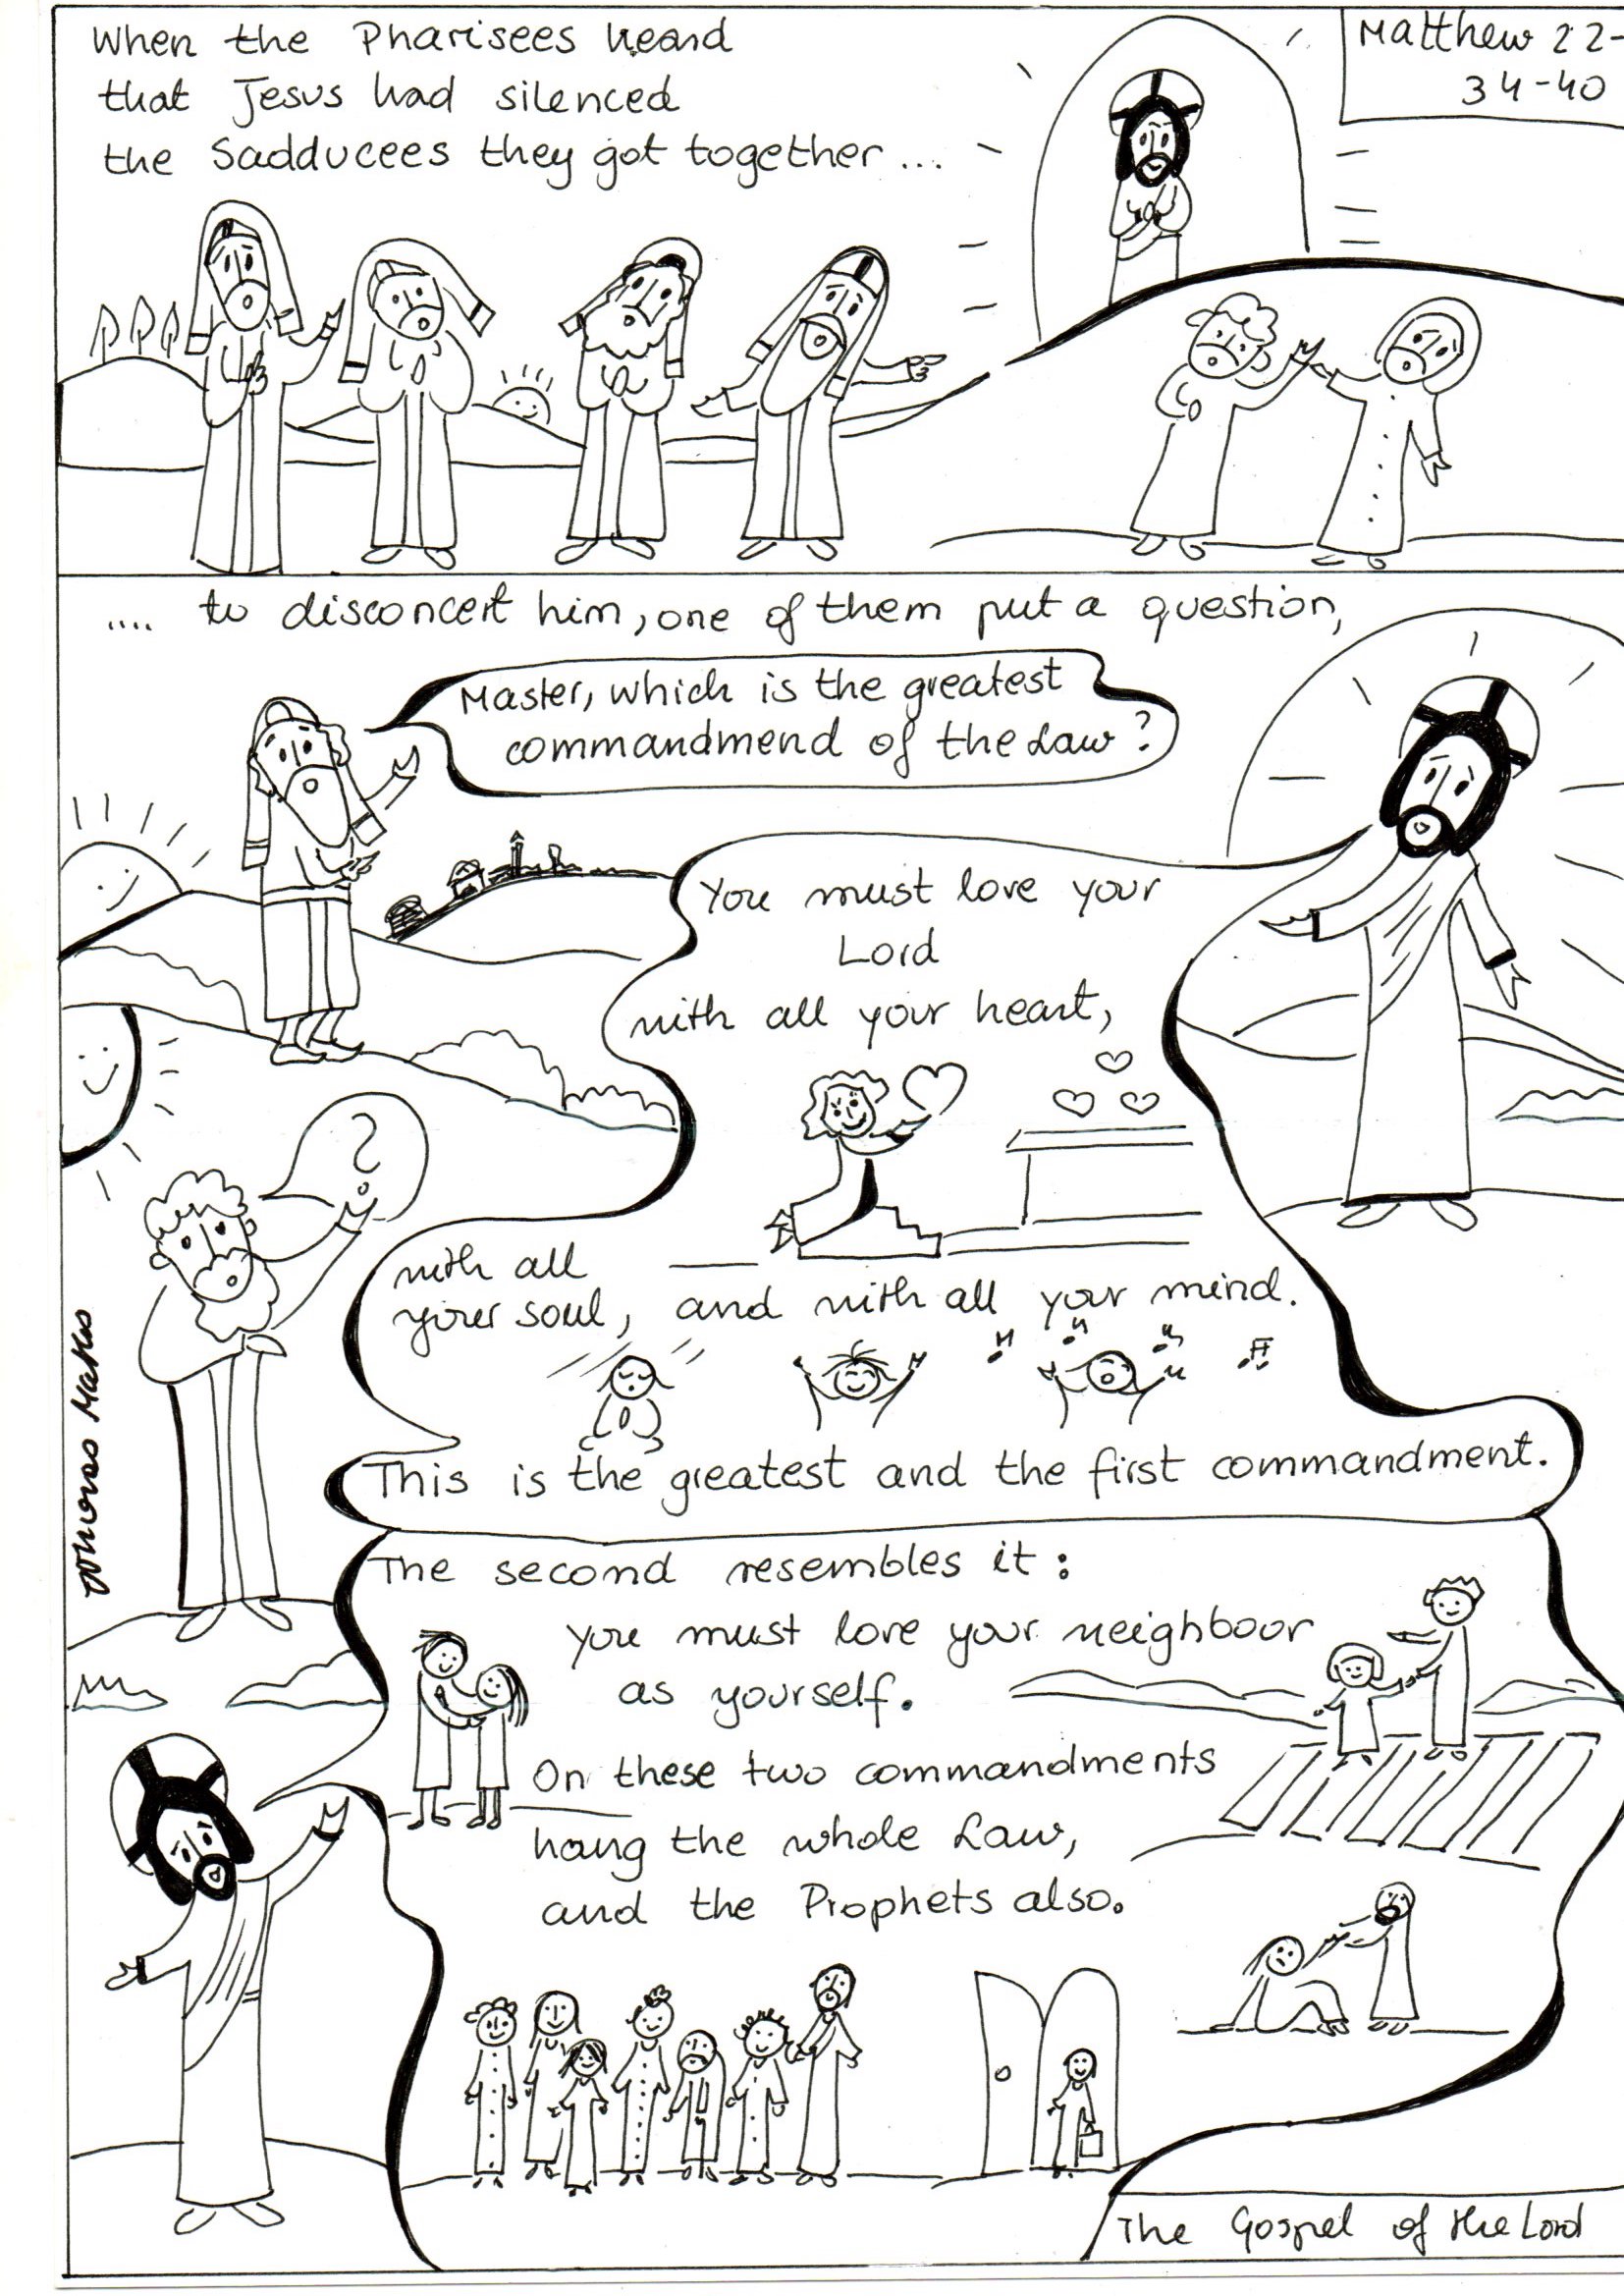 When the Pharisees heard
that Jesus had silenced
the Sadducees they got together ...
Matthew 22-
34-40
.... to disconcert him, one of them put a question,
Master, which is the greatest
commandmend of the Law?
You must love your
Lord
with all your heart,
?
with all
your soul, and with all your mind.
This is the greatest and the first commandment.
The second resembles it:
you must love your neighbour
as yourself.
On these two commandments
hang the whole Law,
and the Prophets also.
The Gospel of the Lord